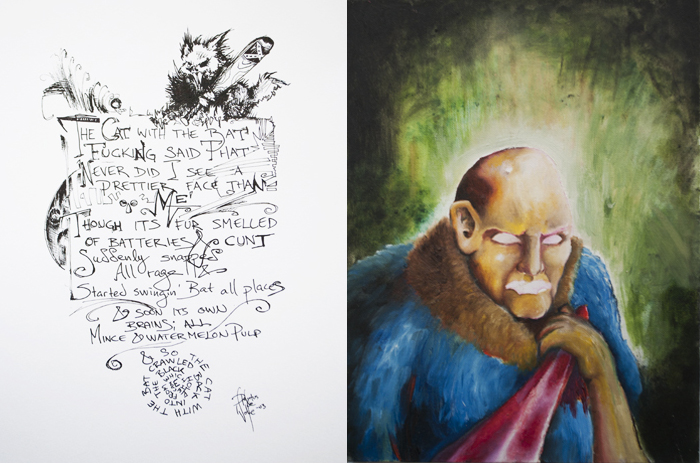 The Cat with the Bat
Fucking said That
Never did I see a
prettier face than
Me
Though its fur smelled
of batteries & cunt
Suddenly snapped
All Orage
Started swingin' Bat all places
& soon its own
Brains; all
Mince & Watermelon Pulp
& So
Crawled the Cat
with the Bat
Back into the
Black